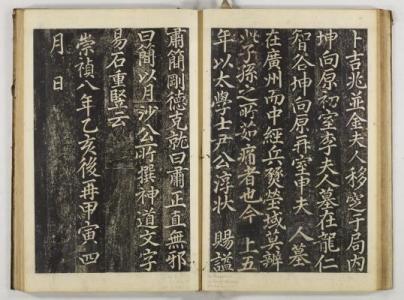 卜吉兆並金夫人移窆于局内
坤向原初室李夫人墓在龍仁
智谷坤向原再室申夫人墓
在廣州而中經兵燹塋域莫辨
此子孫之所如痛者也今上五
年以太學士尹公淳狀賜諡
肅簡剛德克就曰肅正直無邪
曰簡以月沙公所撰神道文字
易石重竪云
崇禎八年乙亥後再甲寅四
月日